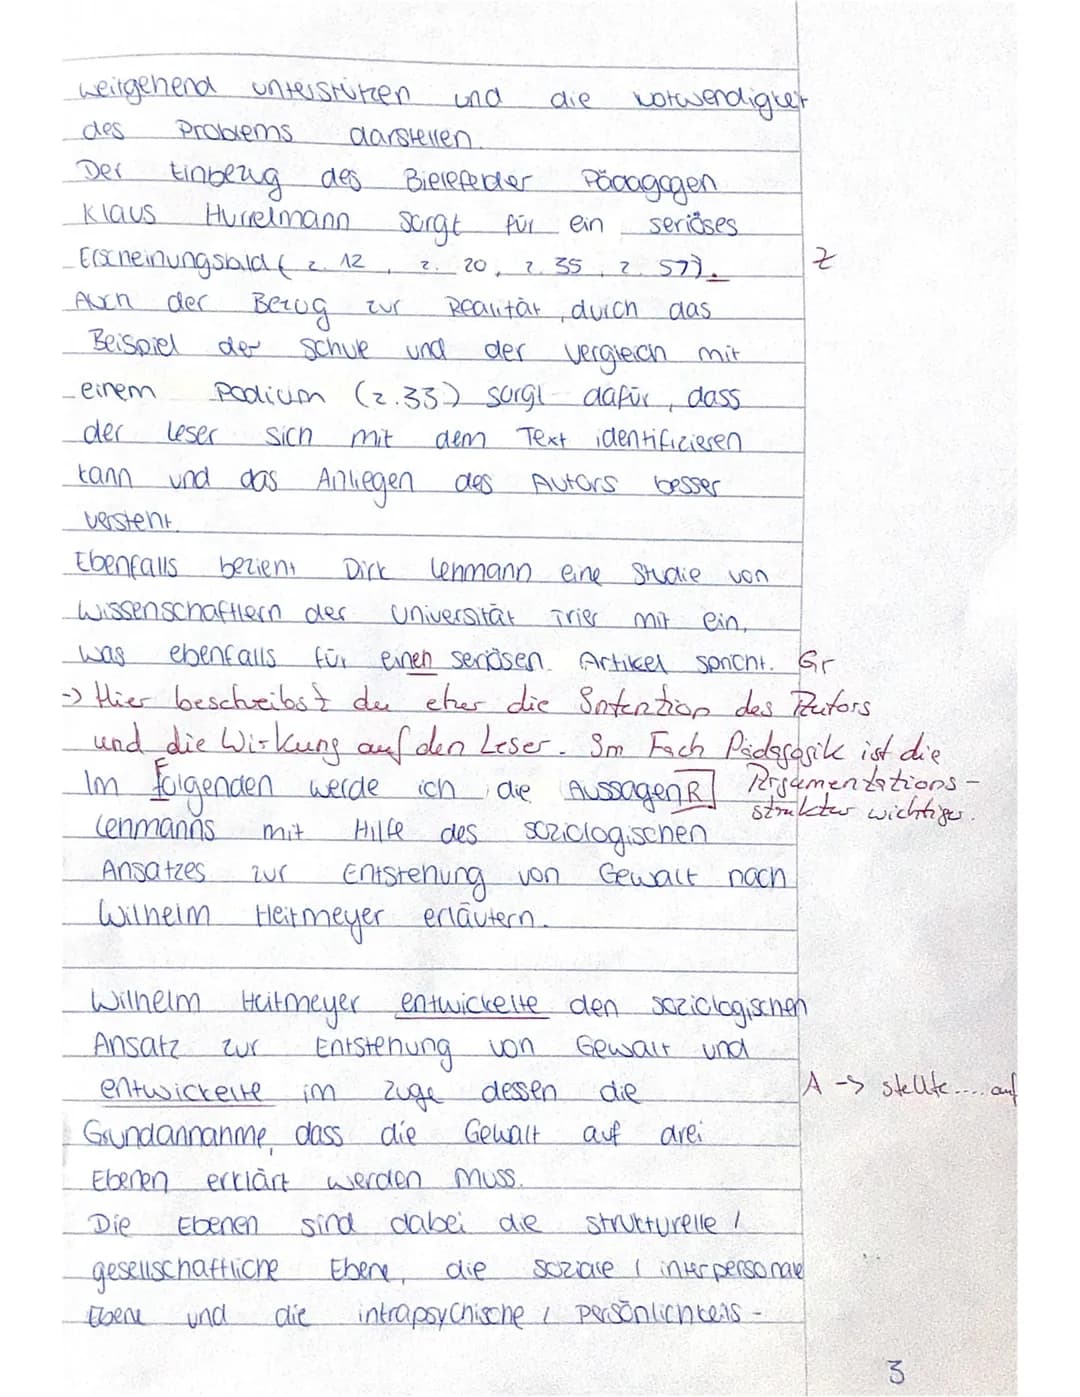 weitgehend unterstützen und die Notwendigkeit
des Problems darstellen.
Der Einbezug des Bielefelder Pädagogen
Klaus Hurrelmann sorgt für ein seriöses
Erscheinungsbild (Z. 12, Z. 20, Z. 35, Z. 57). Z
Auch der Bezug zur Realität, durch das
Beispiel der Schule und der Vergleich mit
einem Podium (Z. 33) sorgt dafür, dass
der Leser sich mit dem Text identifizieren
kann und das Anliegen des Autors besser
versteht.
Ebenfalls bezieht Dirk Lehmann eine Studie von
Wissenschaftlern der Universität Trier mit ein,
was ebenfalls für einen seriösen Artikel spricht. Gr
-> Hier beschreibst du eher die Intention des Autors
und die Wirkung auf den Leser. Im Fach Pädagogik ist die
Argumentations-
struktur wichtiger.
Im Folgenden werde ich die Aussagen R
Lehmanns mit Hilfe des soziologischen
Ansatzes zur Entstehung von Gewalt nach
Wilhelm Heitmeyer erläutern.
Wilhelm Heitmeyer entwickelte den soziologischen
Ansatz zur Entstehung von Gewalt und
entwickelte im Zuge dessen die A -> stellte.... auf
Grundannahme, dass die Gewalt auf drei
Ebenen erklärt werden muss.
Die Ebenen sind dabei die strukturelle /
gesellschaftliche Ebene, die soziale / interpersonale
Ebene und die intrapsychische / Persönlichkeits-
3